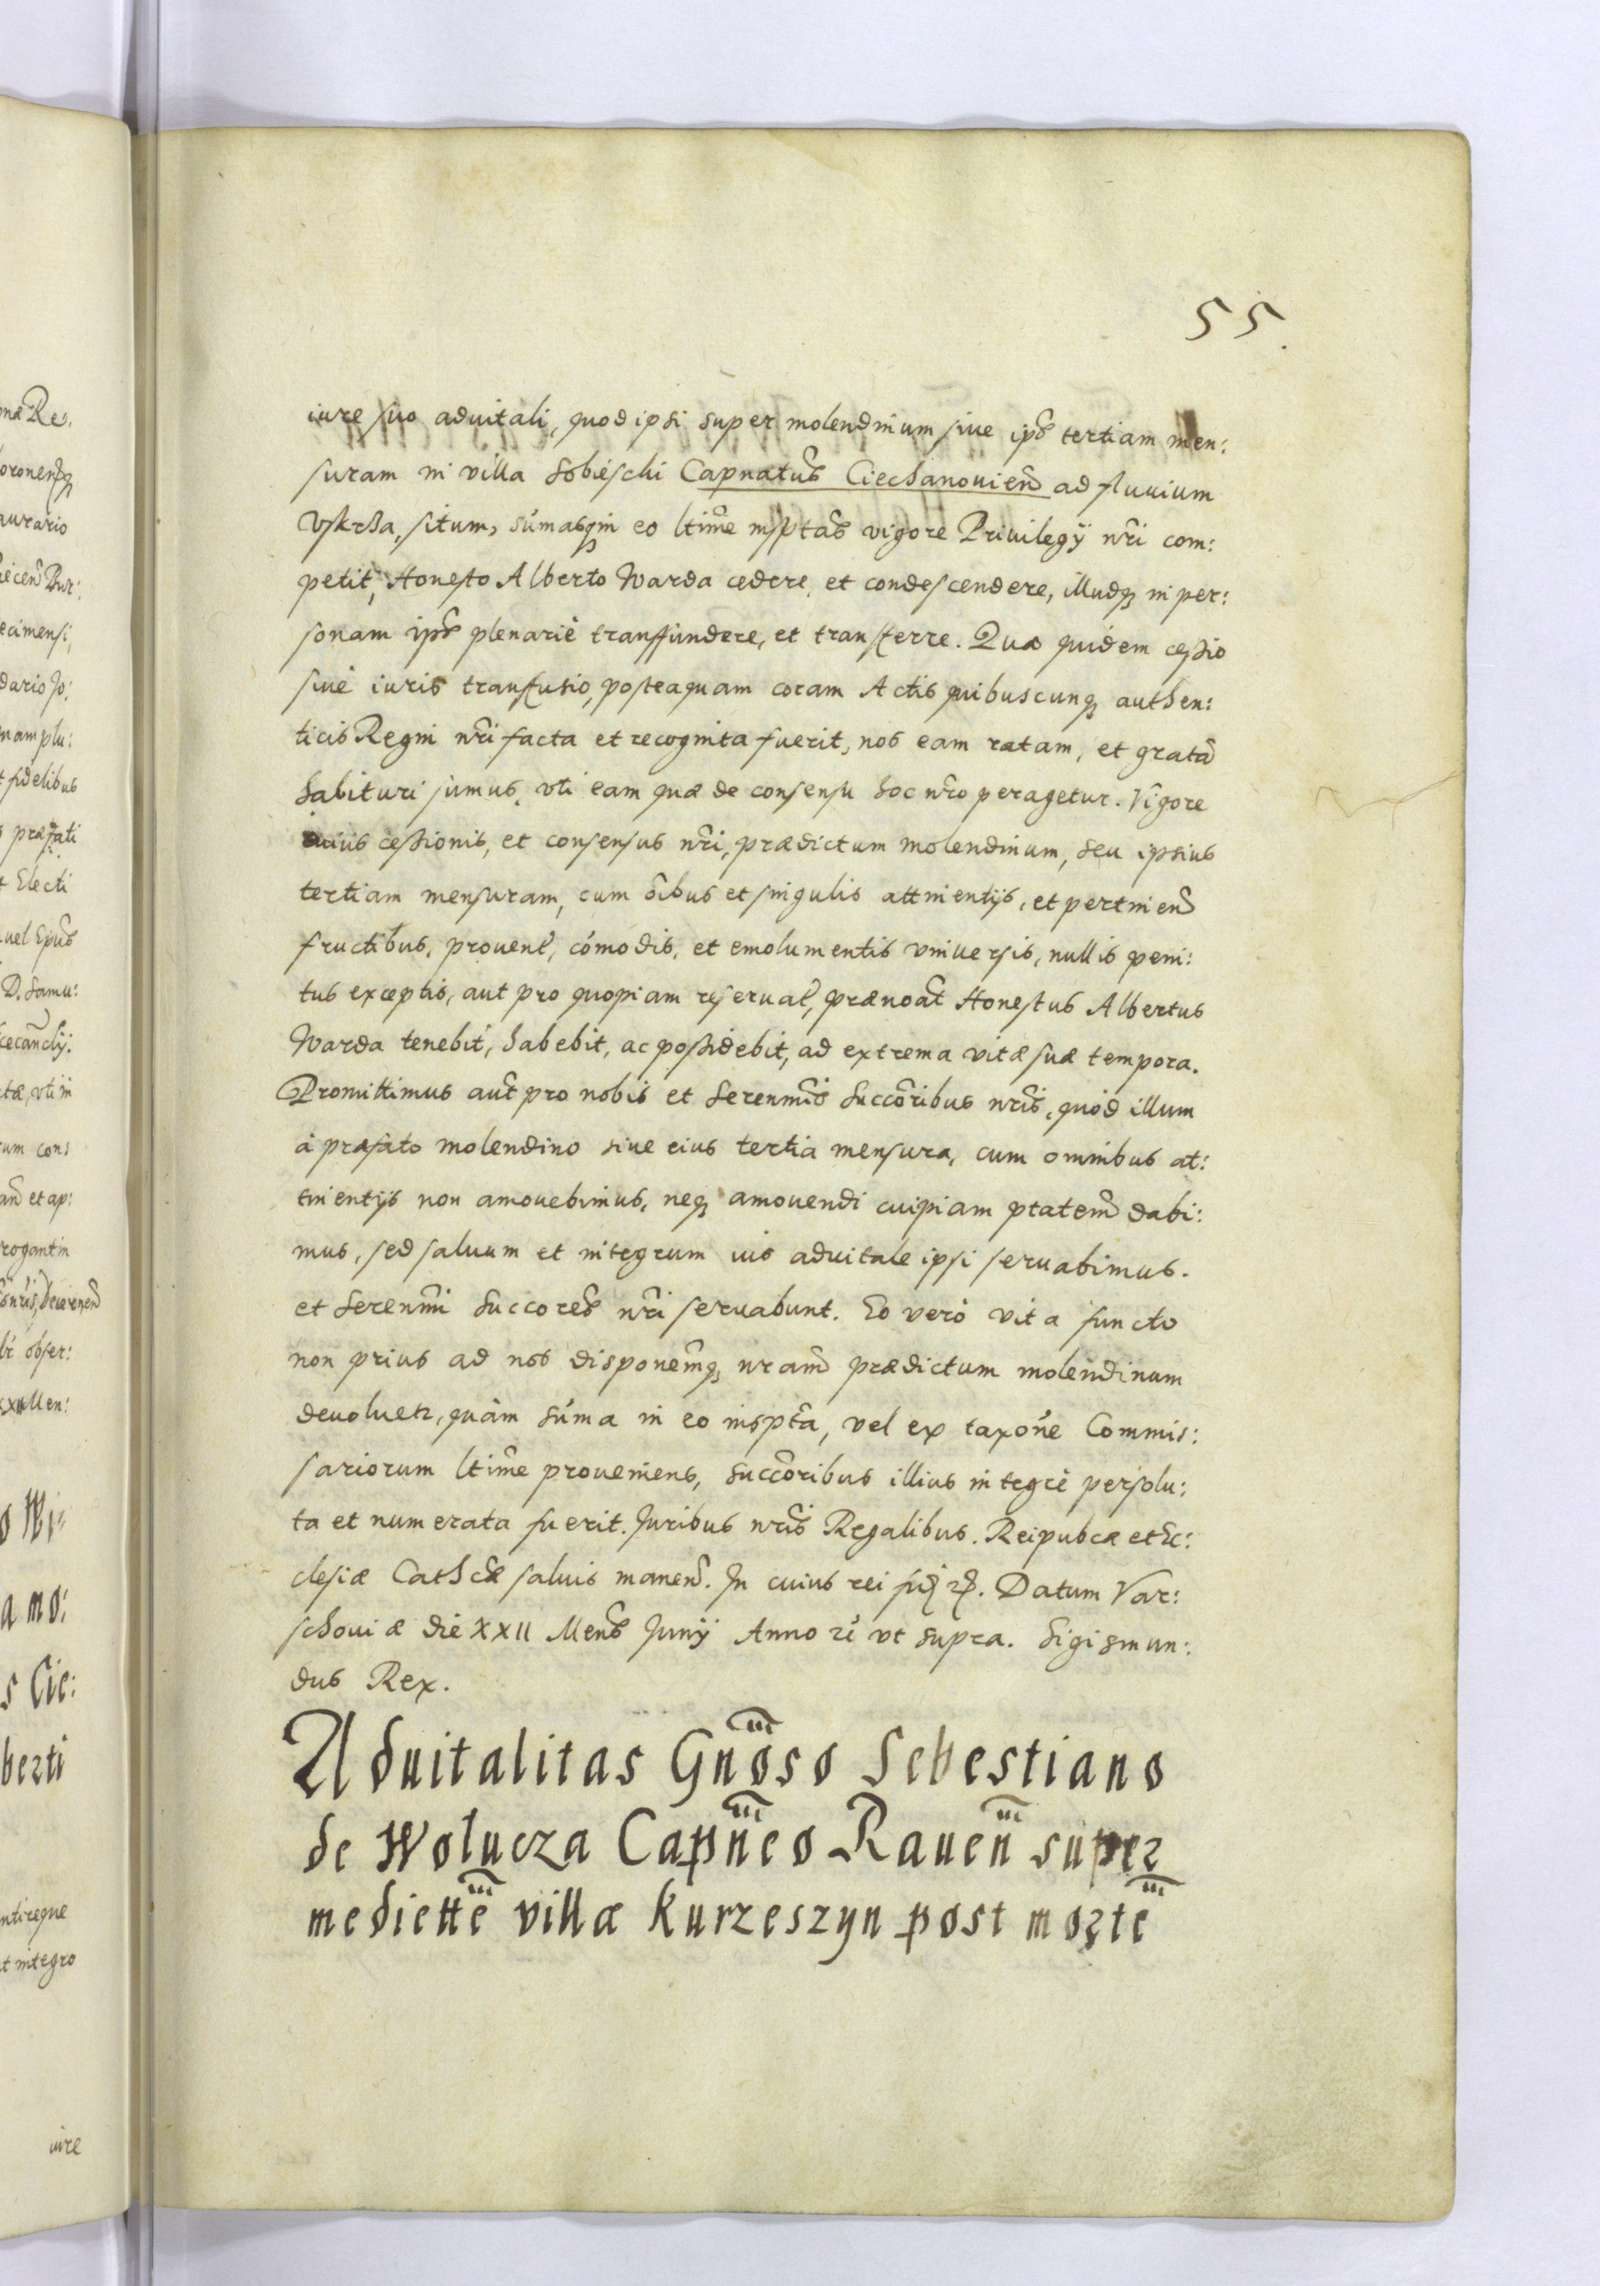 55.
iure suo aduitali, quod ipsi super molendinum siue ips͠ tertiam men:
suram in villa Sobieschi Capnatus͠ Ciechanouien͠ ad fluuium
Vskrha, situm, sum̃asq̃ in eo ltim̃e insptas͠ vigore Priuilegÿ nr̃i com:
petit, Honesto Alberto Warda cedere et condescendere, illudq̃ in per:
sonam ips͠ plenariè transfundere, et transferre. Quæ quidem cessio
siuè iuris transfusio, posteaquam coram Actis quibuscunq̃ authen:
ticis Regni nr̃i facta et recognita fuerit, nos eam ratam, et gratã
habituri sumus, vti eam quæ de consensu hoc nr̃o peragetur. Vigore
cuius cessionis, et consensus nr̃i, prædictum molendinum, seu ipsius
tertiam mensuram, cum oĩbus et singulis attinentijs, et pertinen͠
fructibus, prouent͠, com̃odis, et emolumentis vniuersis, nullis peni:
tus exceptis, aut pro quopiam reseruat͠, prænoat͠ Honestus Albertus
Warda tenebit, habebit, ac possidebit, ad extrema vitæ suæ tempora.
Promittimus aut͠ pro nobis et Serenmis͠ Succoribus͠ nr̃is, quòd illum
à præfato molendino siue eius tertia mensura, cum omnibus at:
tinentijs non amouebimus, neq̃ amouendi cuipiam ptatem͠ dabi:
mus, sed saluum et integrum ius aduitale ipsi seruabimus.
et Serenmi͠ Succores͠ nr̃i seruabunt. Eo verò vita functo
non prius ad nos disponem͠q̃ nram͠ prædictum molendinum
deuoluetr, quàm sum̃a in eo inspta͠, vel ex taxon͠e Commis:
sariorum ltim̃e proueniens, succoribus͠ illius integrè persolu:
ta et numerata fuerit. Juribus nr̃is Regalibus. Reipubcæ et Ec:
clesiæ Cathcæ͠ saluis manen͠. In cuius rei fid͠ rc͠. Datum Var:
schouiæ die XXII Mens͠ Junÿ Anno rc͠ vt supra. Sigismun:
dus Rex.
Aduitalitas Gnõso Sebestiano
de Wolucza Capnẽo Rauen͠ super
mediettẽ villæ Kurzeszyn post mortẽ